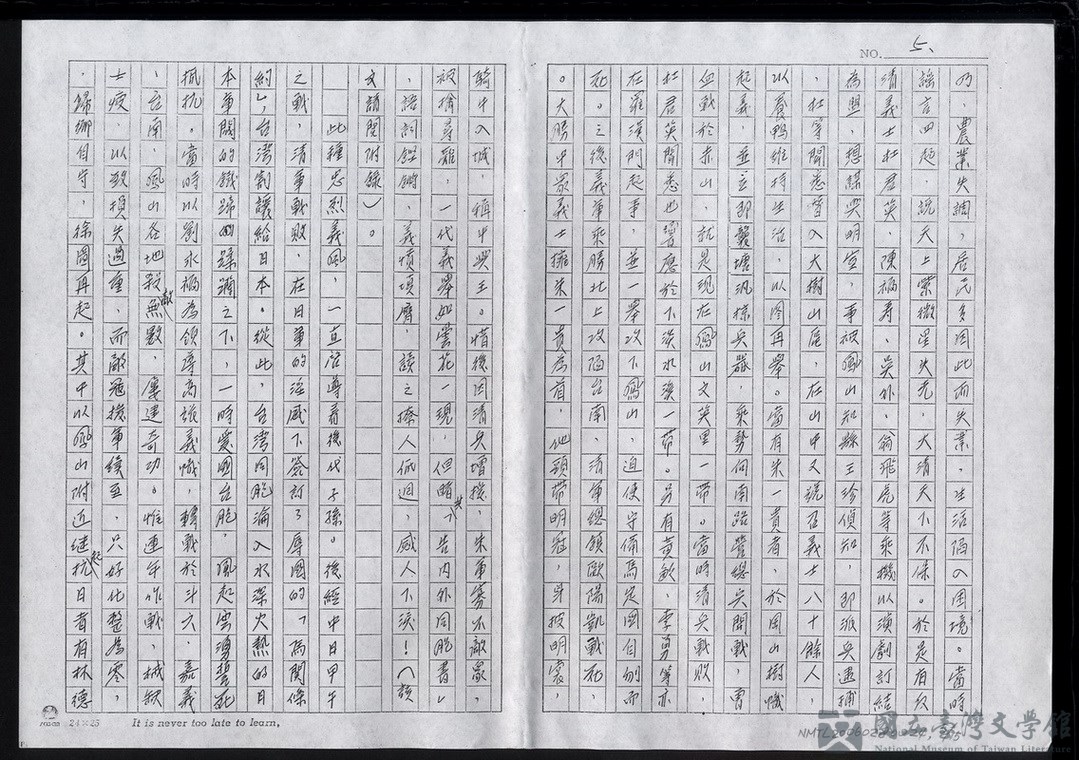 NO. 5、
乃、農業失調，居民多因此而失業，生活陷入困境。當時
謠言四起，說天上紫微星失光，大清天下不保。於是有反
清義士杜君英、陳福壽、吳外、翁飛虎等乘機以演劇訂結
為盟，想謀哭明室，事被鳳山知縣王珍偵知，即派兵逮捕
，杜等聞悉皆入大樹山區，在山中又號召義士八十餘人，
以養鴨維持生活，以圖再舉。當有朱一貴者，於岡山樹幟
起義，並立即襲塘汛掠兵器，乘勢向南路營總兵開戰，曾
血戰於赤山，就是現在鳳山文英里一帶。當時清兵戰敗，
杜君英聞悉也響應於下淡水溪一帶。另有黃敏、李勇等亦
在羅漢門起事，並一舉攻下鳳山，迫使守備馬定國自刎而
死。之後義軍乘勝北上攻陷台南，清軍總領歐陽凱戰死
。大勝中眾義士擁朱一貴為首，他頭帶明冠，身披明裳，
騎牛入城，稱中興王。惜後因清兵增援，朱軍寡不敵眾，
被擒尋難，一代義舉如曇花一現，但睹其「告內外同胞書」
，語詞鏗鏘，義憤填膺，讀之撩人低迴，感人下淚！（該
文請閱附錄）。
此種忠烈義風，一直沿遵着後代子孫。後經中日甲午
之戰，清軍戰敗，在日軍的淫威下簽訂了辱國的「馬關條
約」，台灣割讓給日本。從此，台灣同胞淪入水深火熱的日
本軍閥的鐵蹄蹂躪之下，一時愛國台胞，風起雲湧誓死
抵抗。當時以劉永福為領導高謊義幟，轉戰於斗六、嘉義
、台南、鳳山各地殺敵無數，屢建奇功。惟連年作戰，械缺
士疲，以致損失過重，而敵冠援軍續至，只好化整為零，
歸鄉自守，徐圖再起。其中以鳳山附近繼起抗日者有林德
24×25
It is never too late to learn,
NMTL2006022
國立臺灣文學館
National Museum of Taiwan Literature